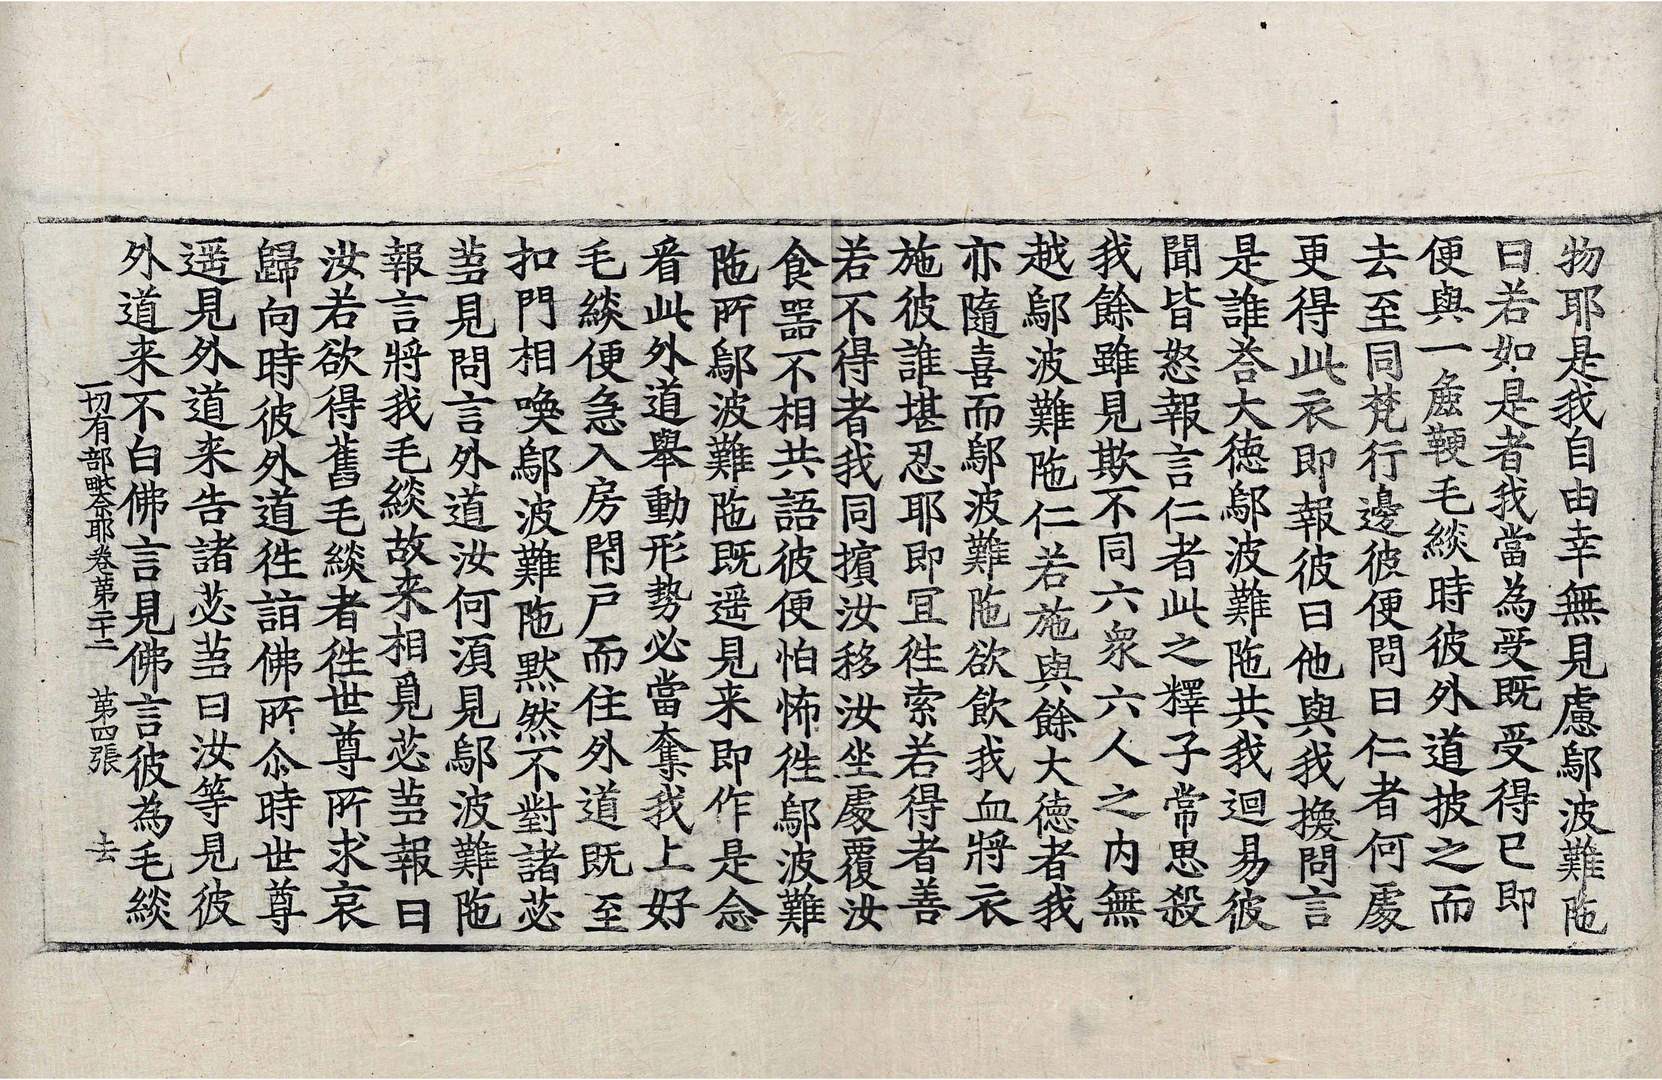 物耶是我自由幸無見慮鄔波難陁
曰若如是者我當為受既受得已即
便與一麁鞕毛緂時彼外道披之而
去至同梵行邊彼便問曰仁者何處
更得此衣即報彼曰他與我換問言
是誰荅大德鄔波難陁共我迴易彼
聞皆怒報言仁者此之釋子常思殺
我餘雖見欺不同六衆六人之內無
越鄔波難陁仁若施與餘大德者我
亦隨喜而鄔波難陁欲飲我血將衣
施彼誰堪忍耶即冝徃索若得者善
若不得者我同擯汝移汝坐處覆汝
食器不相共語彼便怕怖徃鄔波難
陁所鄔波難陁既遥見来即作是念
看此外道舉動形勢必當奪我上好
毛緂便急入房閇戸而住外道既至
扣門相喚鄔波難陁默然不對諸苾
蒭見問言外道汝何湏見鄔波難陁
報言將我毛緂故来相覓苾蒭報曰
汝若欲得舊毛緂者徃世尊所求哀
歸向時彼外道徃詣佛所尒時世尊
遥見外道来告諸苾蒭曰汝等見彼
外道来不白佛言見佛言彼為毛緂
一切有部毗奈耶卷第二十二 第四張 去